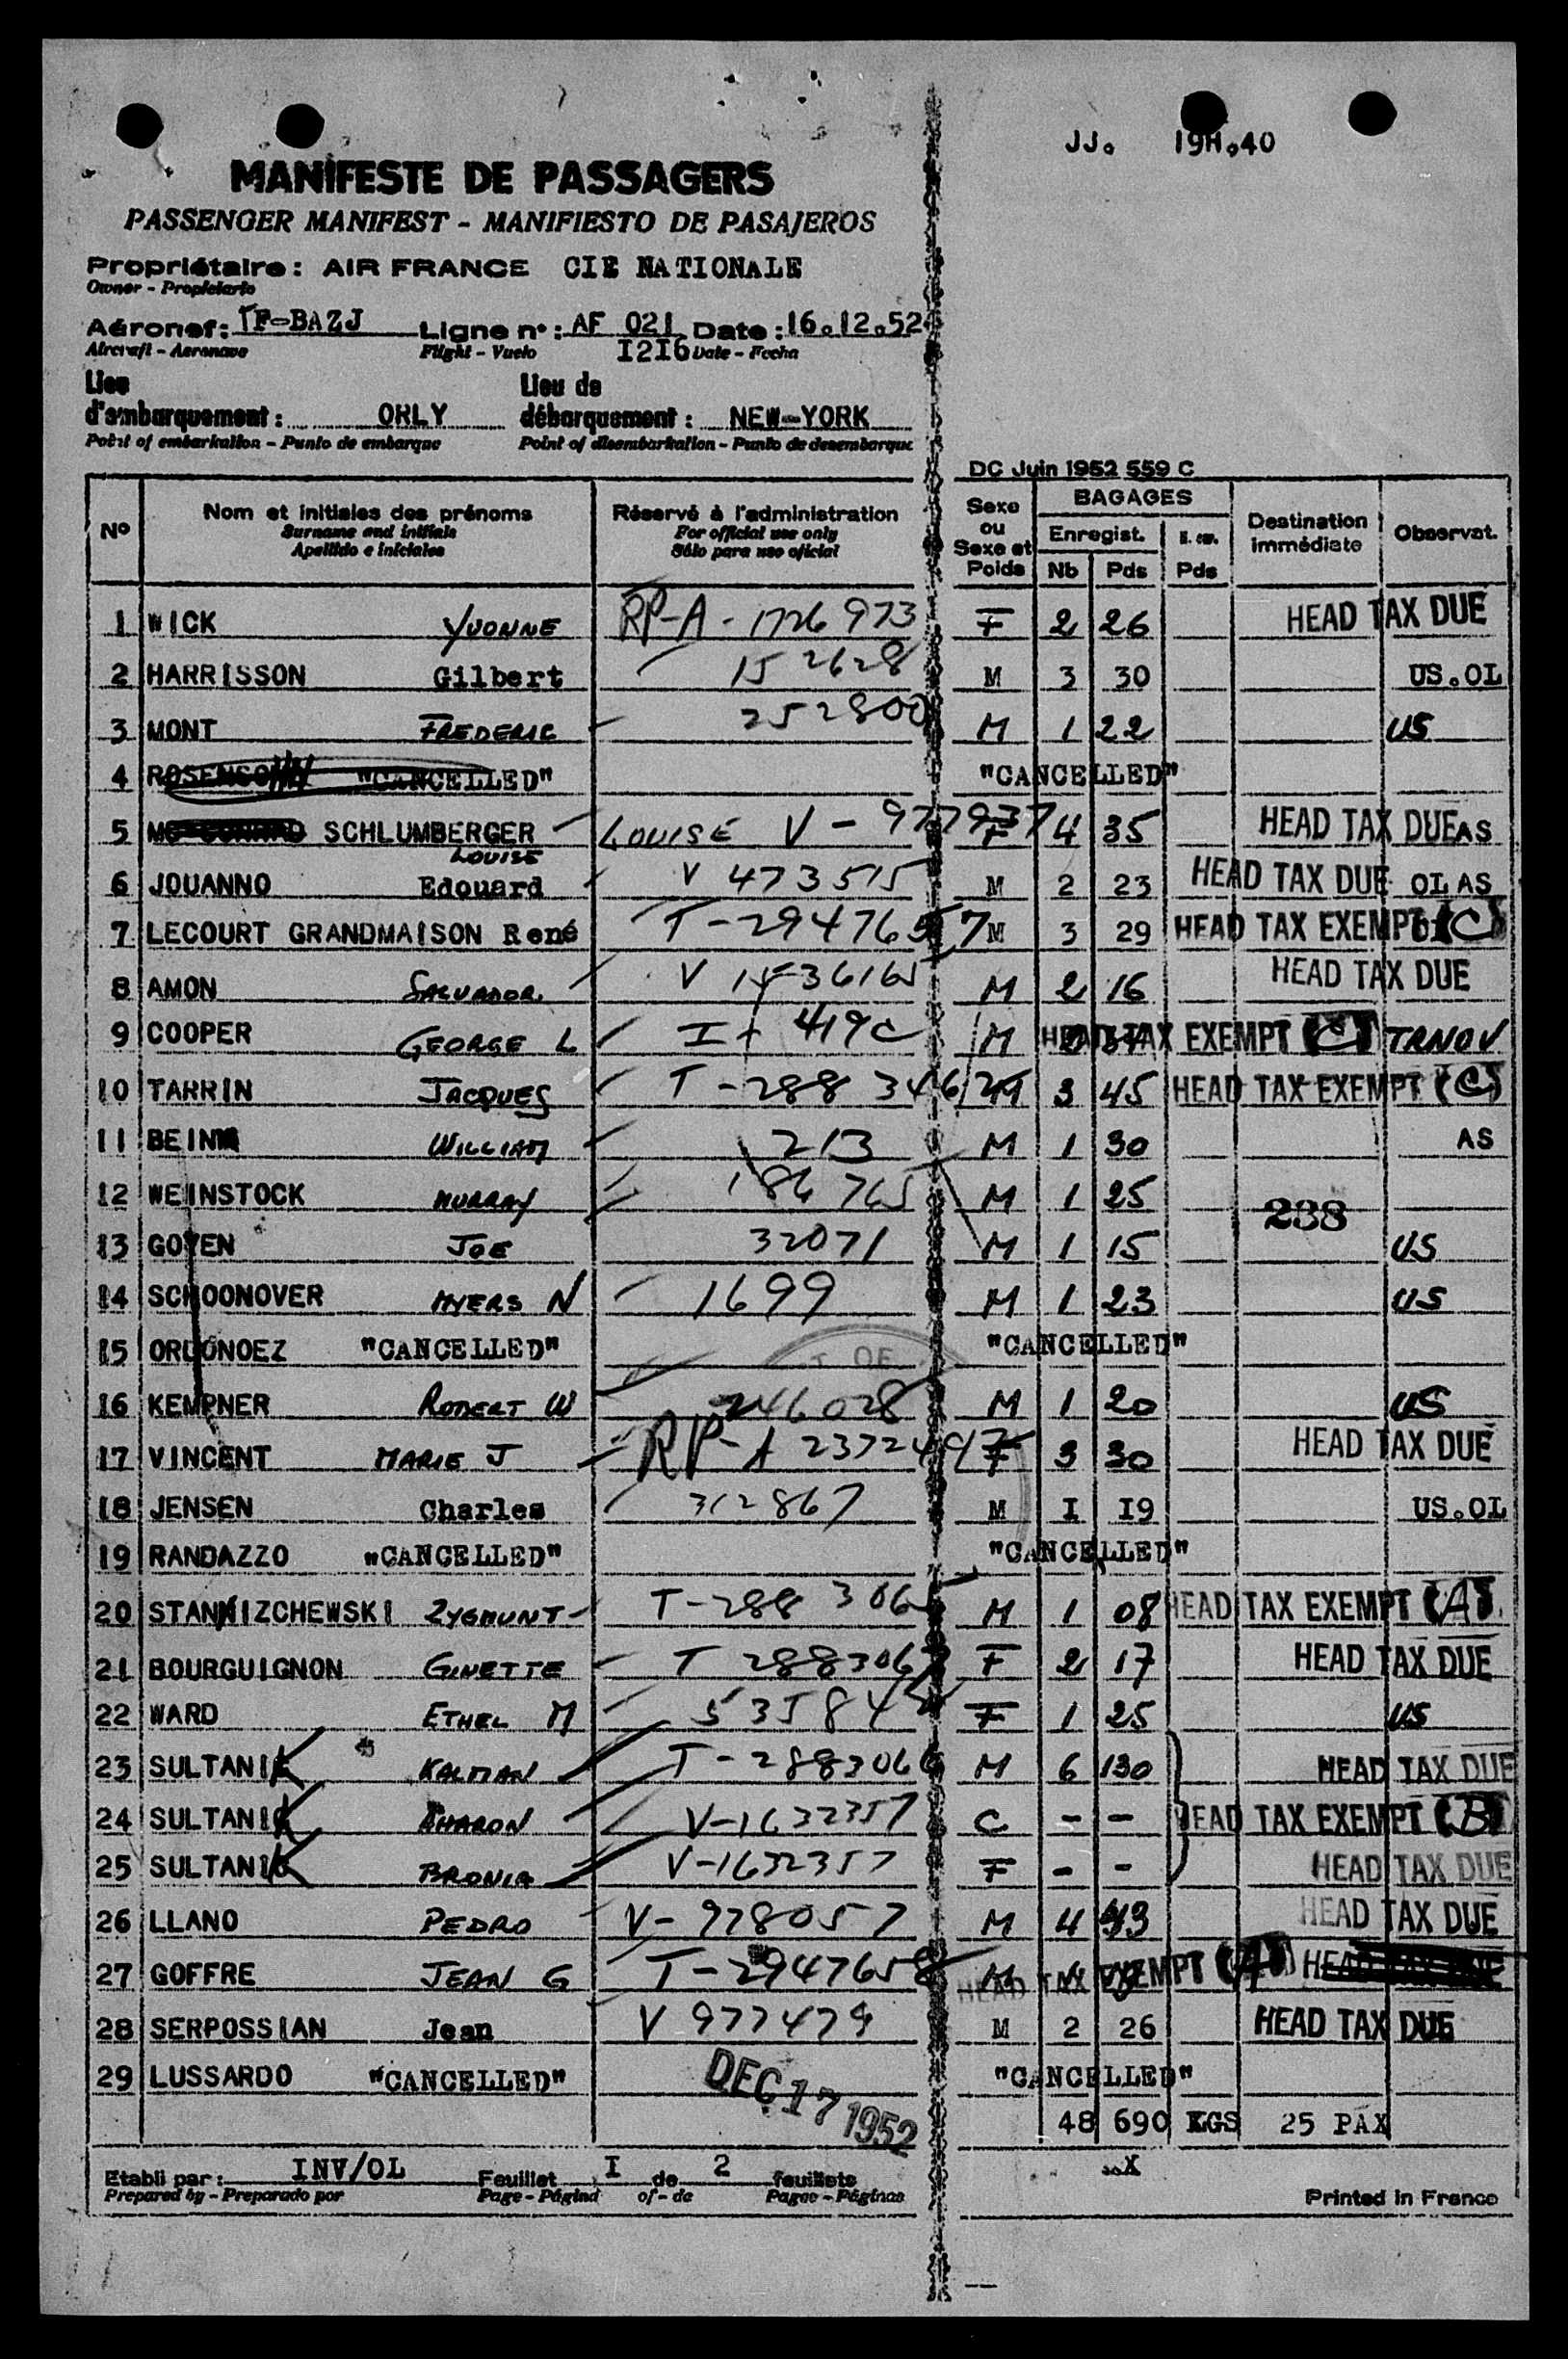 JJ. 19H.40
MANIFESTE DE PASSAGERS
PASSENGER MANIFEST - MANIFIESTO DE PASAJEROS
Propriétaire : AIR FRANCE CIE NATIONALE
Owner - Propietario
Aéronef : F-BAZJ Ligne n° : AF 021 Date : 16.12.52
Aircraft - Aeronave Flight - Vuelo I2I6 Date - Fecha
Lieu Lieu de
d'embarquement : ORLY débarquement : NEW-YORK
Point of embarkation - Punto de embarque Point of disembarkation - Punto de desembarque
DC Juin 1952 559 C
N° Nom et initiales des prénoms Réservé à l'administration Sexe ou Sexe et Poids BAGAGES Destination immédiate Observat.
Surname and initials For official use only Enregist.
Apellido e iniciales Sólo para uso oficial Nb Pds Pds
1 WICK YVONNE RP-A-1726973 F 2 26 HEAD TAX DUE
2 HARRISSON Gilbert 152628 M 3 30 US.OL
3 MONT FREDERIC 252800 M 1 22 US
4 "CANCELLED" "CANCELLED"
5 SCHLUMBERGER LOUISE V-977937 F 4 35 HEAD TAX DUE AS
LOUISE
6 JOUANNO Edouard V 473515 M 2 23 HEAD TAX DUE OL AS
7 LECOURT GRANDMAISON René T-2947657 M 3 29 HEAD TAX EXEMPT (C)
8 AMON SALVADOR V 1436165 M 2 16 HEAD TAX DUE
9 COOPER GEORGE L 419C M HEAD TAX EXEMPT (C) TRNOV
10 TARRIN JACQUES T-288 346 M 3 45 HEAD TAX EXEMPT (C)
11 BEIN WILLIAM 213 M 1 30 AS
12 WEINSTOCK MURRAY 186765 M 1 25
238
13 GOYEN JOE 32071 M 1 15 US
14 SCHOONOVER MYERS N 1699 M 1 23 US
15 ORDONOEZ "CANCELLED" "CANCELLED"
16 KEMPNER ROBERT W 246028 M 1 20 US
17 VINCENT MARIE J RP-A 2372497 F 3 30 HEAD TAX DUE
18 JENSEN Charles 312867 M I I9 US.OL
19 RANDAZZO "CANCELLED" "CANCELLED"
20 STANIZCHEWSKI ZYGMUNT T-288 3065 M 1 08 HEAD TAX EXEMPT (A)
21 BOURGUIGNON GINETTE T 2883067 F 2 17 HEAD TAX DUE
22 WARD ETHEL M 535845 F 1 25 US
23 SULTANIK KALMAN T-2883066 M 6 130 HEAD TAX DUE
24 SULTANIK SHARON V-1632357 C - - HEAD TAX EXEMPT (B)
25 SULTANIK BRONIA V-1632357 F - - HEAD TAX DUE
26 LLANO PEDRO V-978057 M 4 43 HEAD TAX DUE
27 GOFFRE JEAN G T-2947658 M HEAD TAX EXEMPT (A)
28 SERPOSSIAN Jean V 977479 M 2 26 HEAD TAX DUE
29 LUSSARDO "CANCELLED" "CANCELLED"
DEC 17 1952
48 690 KGS 25 PAX
Etabli par : INV/OL Feuillet I de 2 feuillets
Prepared by - Preparado por Page - Página of - de Pages - Páginas
Printed in France